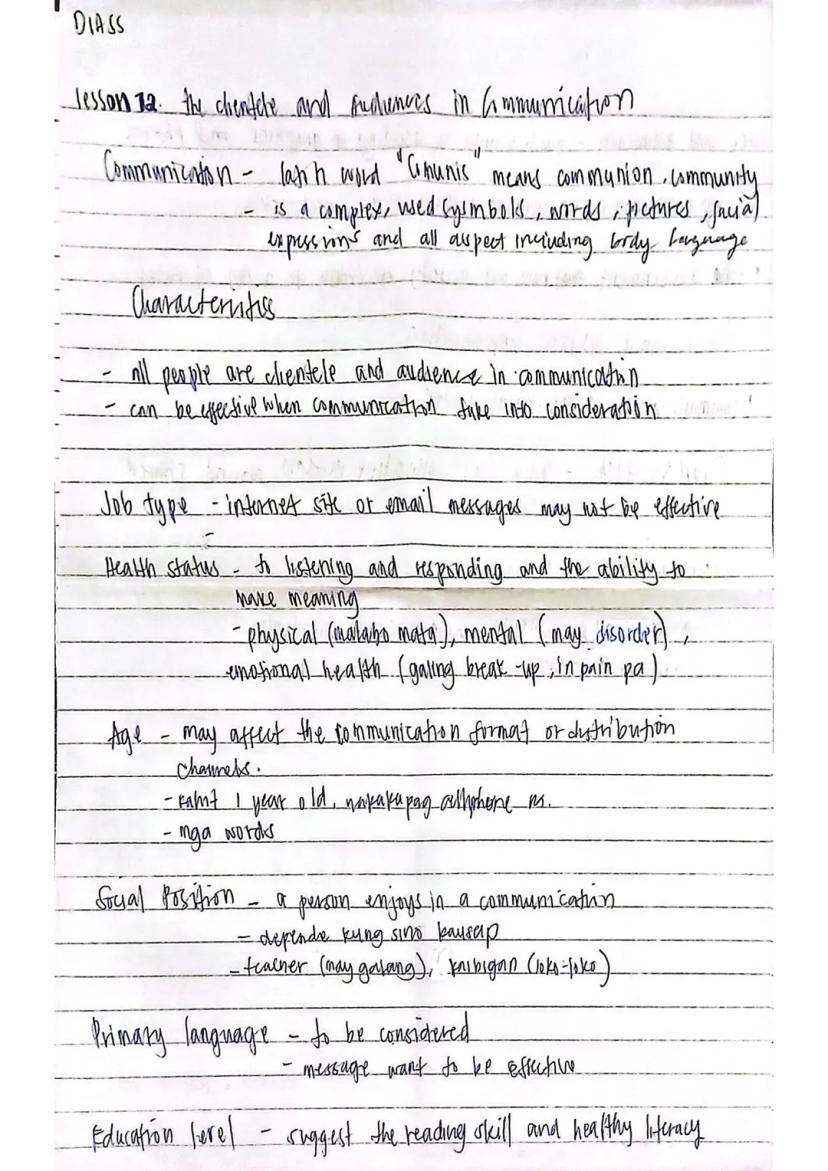 DIASS
lesson 12. The clientele and Audiences in Communication
Communication - latin word "Comunis" means communion, community
- is a complex, used symbols, words, pictures, facial
expressions and all aspect including body language
Characteristics
- all people are clientele and audience in communication
- can be effective when communication take into consideration
Job type - internet site or email messages may not be effective
-
Health status - to listening and responding and the ability to
make meaning
- physical (malabo mata), mental (may disorder),
emotional health (galing break-up, in pain pa)
Age - may affect the communication format or distribution
channels.
- kahit 1 year old, nakakapag cellphone na.
- mga words
Social Position - a person enjoys in a communication
- depende kung sino kausap
- teacher (may galang), kaibigan (loko-loko)
Primary language - to be considered
- message want to be effective
Education level - suggest the reading skill and healthy literacy